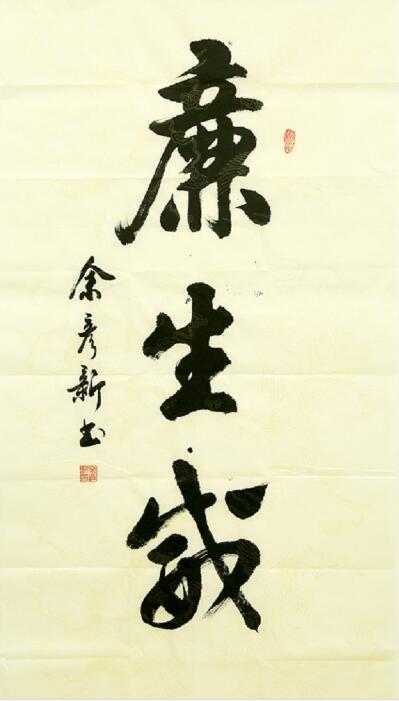 廉生威
余彦新书